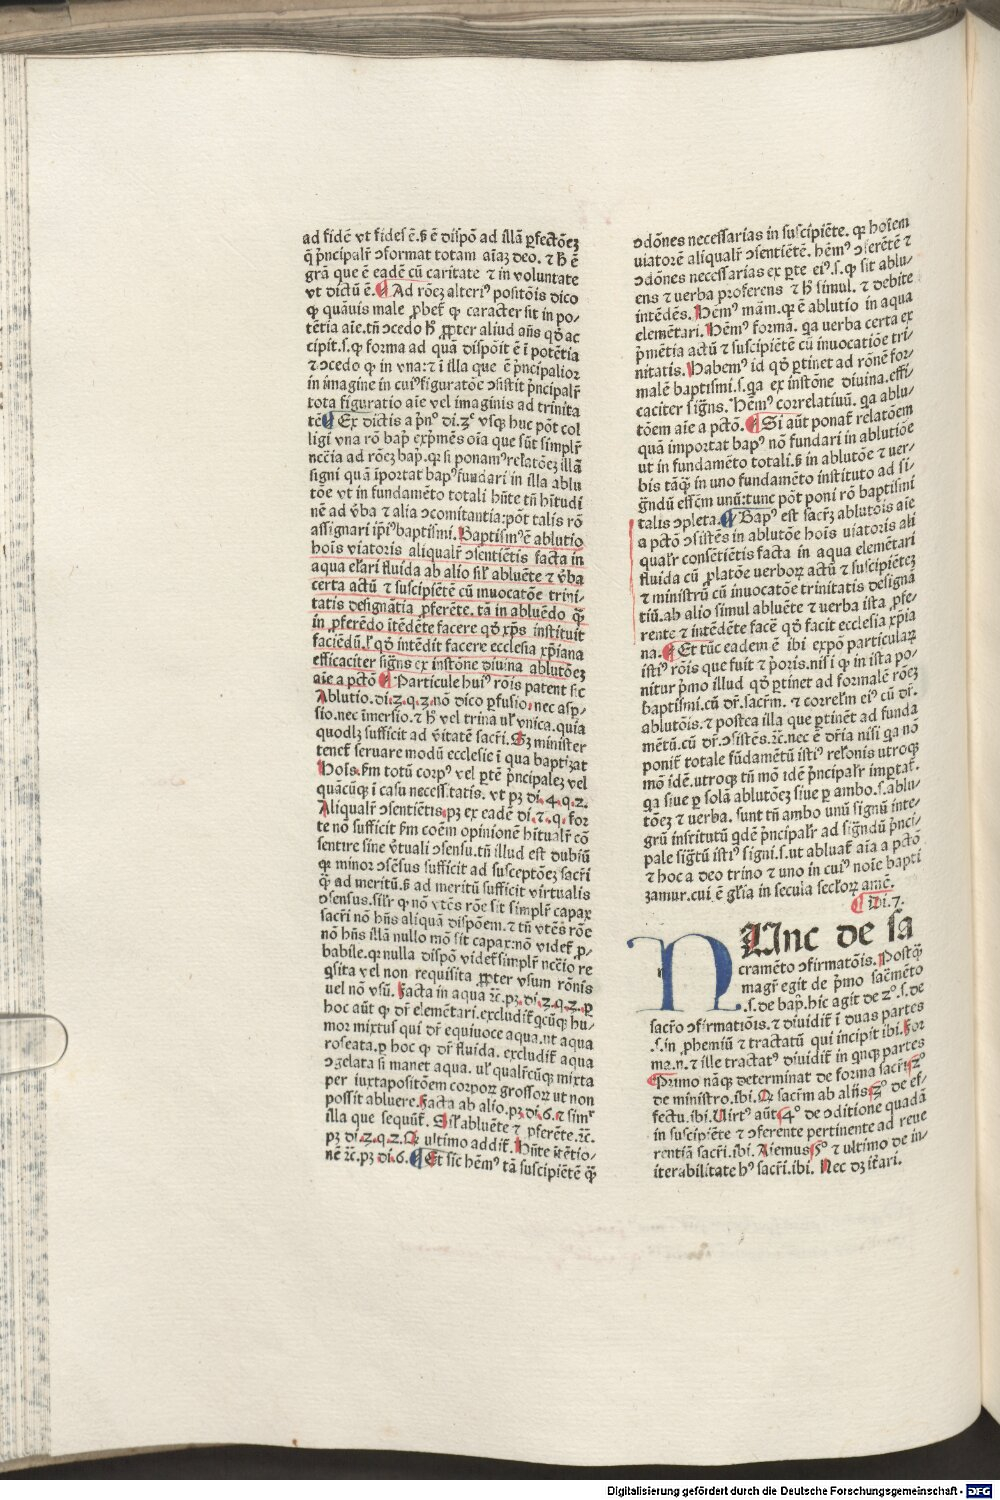 ad fidē vt fides ē.ß ē dispō ad illā ꝑfectōeꝫ
q̄ pͥncipalr̄ ꝯformat totam aīaꝫ deo. ⁊ ħ ē
grā que ē eadē cū caritate ⁊ in voluntate
vt dictū ē. ¶ Ad rōeꝫ alteriꝰ positōis dico
ꝙ quāuis male ꝓbet̄ ꝙ caracter sit in po⸗
tētia aīe.tn̄ ꝯcedo ħ ꝓpter aliud an̄s qđ ac
cipit.s.ꝙ forma ad quā dispōit ē ī potētia
⁊ ꝯcedo ꝙ in vna:⁊ ī illa que ē pͥncipalior
in imagine in cuiꝰ figuratōe ꝯsistit pͥncipalr̄
tota figuratio aīe vel imaginis ad trinita
tē ¶ Ex dictis a pͥnº di.3ͤ vsqꝫ huc pōt col
ligi vna rō bap̄ exp̄mēs oīa que sūt simplr̄
nccīa ad rōeꝫ bap̄.qꝛ si ponamꝰ relatōeꝫ illā
signi quā īportat bapꝰ fundari in illa ablu
tōe vt in fundamēto totali hn̄te tn̄ hītudi
nē ad v̄ba ⁊ alia ꝯcomitantia:pōt talis rō
assignari ip̄iꝰ baptismi. Baptismꝰ ē ablutio
hoīs viatoris aliqualr̄ ꝯsentiētis facta in
aqua elari fluida ab alio sil̄ abluēte ⁊ v̄ba
certa actū ⁊ suscipiētē cū inuocatōe trini⸗
tatis designātia ꝓferēte. tā in abluēdo ꝙ̄
in ꝓferēdo itēdēte facere qđ xp̄s instituit
faciēdū.l̄ qđ intēdit facere ecclesia xp̄iana
efficaciter sig̅ns ex instōne diuina ablutōeꝫ
aīe a pctō ¶ Particule huiꝰ rōis patent sic
Ablutio.di.3.q.3.nō dico ꝑfusio,nec asp̄⸗
sio.nec īmersio.⁊ ħ vel trina ul̄ vnica.quia
quodlꝫ sufficit ad v̄itatē sacr̄i. Sꝫ minister
tenet̄ seruare modū ecclesie ī qua baptizat
Hoīs.ẜm totū corpꝰ vel ꝑtē pͥncipaleꝫ vel
quācūqꝫ ī casu necess.tatis. vt pꝫ di.4.q.2.
Aliqualr̄ ꝯsentiētis.pꝫ ex eadē di.7.q.for
te nō sufficit ẜm coēm opinionē hītualr̄ cō
sentire sine v̄tuali ꝯsensu.tn̄ illud est dubiū
qꝛ minor ꝯsēsus sufficit ad susceptōeꝫ sacr̄i
ꝙ̄ ad meritū.ß ad meritū sufficit virtualis
ꝯsensus.silr̄ ꝙ nō vtēs rōe sit simplr̄ capax
sacr̄i nō hn̄s aliquā dispōem.⁊ tn̄ vtēs rōe
nō hn̄s illā nullo mō sit capax:nō videt̄ ꝓ⸗
babile.qꝛ nulla dispō videt̄ simplr̄ nccīo re
q̇sita vel non requisita ꝓpter vsum rōnis
uel nō vsū. Facta in aqua ⁊c̄.pꝫ.di.3.q.3.ꝑ
hoc aūt ꝙ dr̄ elemētari.excludit̄ q̇cūqꝫ hu⸗
mor mixtus qui dr̄ equiuoce aqua.ut aqua
roseata.ꝑ hoc ꝙ dr̄ fluida. excludit̄ aqua
ꝯgelata si manet aqua. ul̄ qualr̄cūqꝫ mixta
per iuxtapositōem corporꝝ grossorꝝ ut non
possit abluere. Facta ab alio.pꝫ.di.6.⁊ simr̄
illa que sequūt̄. Sil̄ abluēte ⁊ ꝓferēte.⁊c̄.
pꝫ di.3.q.2. Qꝛ ultimo addit̄. Hn̄te ītētio⸗
nē ⁊c̄.pꝫ di.6. ¶ Et sic hēmꝰ tā suscipiētē ꝙ̄
ꝯdōnes necessarias in suscipiēte. qꝛ hoīem
uiatorē aliqualr̄ ꝯsentiētē. hēmꝰ ꝯferētē ⁊
ꝯdōnes necessarias ex ꝑte eiꝰ.s.ꝙ sit ablu⸗
ens ⁊ uerba proferens ⁊ ħ simul. ⁊ debite
intēdēs. Hēmꝰ mām.qꝛ ē ablutio in aqua
elemētari. Hēmꝰ formā. qa uerba certa ex
pͥmētia actū ⁊ suscipiētē cū inuocatiōe tri⸗
nitatis. Habemꝰ id qđ ꝑtinet ad rōnē for⸗
malē baptismi.s.qa ex instōne diuina.effi⸗
caciter sig̅ns. Hēmꝰ correlatiuū. qa ablu⸗
tōem aīe a pctō. ¶ Si aūt ponat̄ relatōem
quā importat bapꝰ nō fundari in ablutiōe
ut in fundamēto totali.ß in ablutōe ⁊ uer⸗
bis tāꝙ̄ in uno fundamēto instituto ad si⸗
g̅ndū effcm unū:tunc pōt poni rō baptismi
talis ꝯpleta. ¶ Bapꝰ est sacr̄ꝫ ablutōis aīe
a pctō ꝯsistēs in ablutōe hoīs uiatoris ali
qualr̄ consētiētis facta in aqua elemētari
fluida cū ꝓlatōe uerborꝝ actū ⁊ suscipiēteꝫ
⁊ ministrū cū inuocatōe trinitatis designā
tiū.ab alio simul abluēte ⁊ uerba ista ꝓfe⸗
rente ⁊ intēdēte facē qđ facit ecclesia xp̄ia
na. ¶ Et tūc eadem ē ibi expō particularꝝ
istiꝰ rōis que fuit ⁊ pͥoris.nisi ꝙ in ista po⸗
nitur pͥmo illud qđ ꝑtinet ad formalē rōeꝫ
baptismi.cū dr̄.sacr̄m. ⁊ correlm̄ eiꝰ cū dr̄.
ablutōis.⁊ postea illa que ꝑtinēt ad funda
mētū.cū dr̄.ꝯsistēs.⁊c̄.nec ē dr̄ia nisi qa nō
ponit̄ totale fūdamētū istiꝰ relonis utroqꝫ
mō idē.utroqꝫ tn̄ mō idē pͥncipalr̄ imꝑtat̄.
qa siue ꝑ solā ablutōeꝫ siue ꝑ ambo.s.ablu⸗
tōeꝫ ⁊ uerba. sunt tn̄ ambo unū signū inte⸗
grū institutū q̇dē pͥncipalr̄ ad sig̅ndū pͥnci⸗
pale sig̅tū istiꝰ signi.s.ut abluat̄ aīa a pctō
⁊ hoc a deo trino ⁊ uno in cuiꝰ noīe bapti
zamur.cui ē gl̄ia in secula seclorꝝ amē.
¶ Di.7.
NUnc de sa
cramēto ꝯfirmatōis. Postꝙ̄
magr̄ egit de pͥmo sac̄mēto
.s.de bap̄.hic agit de 2º.s.de
sacr̄o ꝯfirmatiōis.⁊ diuidit̄ ī duas partes
.s.in ꝓhemiū ⁊ tractatū qui incipit ibi. For
ma.n.⁊ ille tractatꝰ diuidit̄ in qnqꝫ partes
Primo nāqꝫ determinat de forma sacr̄i 2º
de ministro.ibi. Qꝛ sacr̄m ab aliis 3º de ef⸗
fectu.ibi.Uirtꝰ aūt 4º de ꝯditione quadā
in suscipiēte ⁊ ꝯferente pertinente ad reue
rentiā sacr̄i.ibi. Aiemus 5º ⁊ ultimo de in⸗
iterabilitate hꝰ sacr̄i.ibi. Nec dꝫ it̄ari.
Digitalisierung gefördert durch die Deutsche Forschungsgemeinschaft - DFG